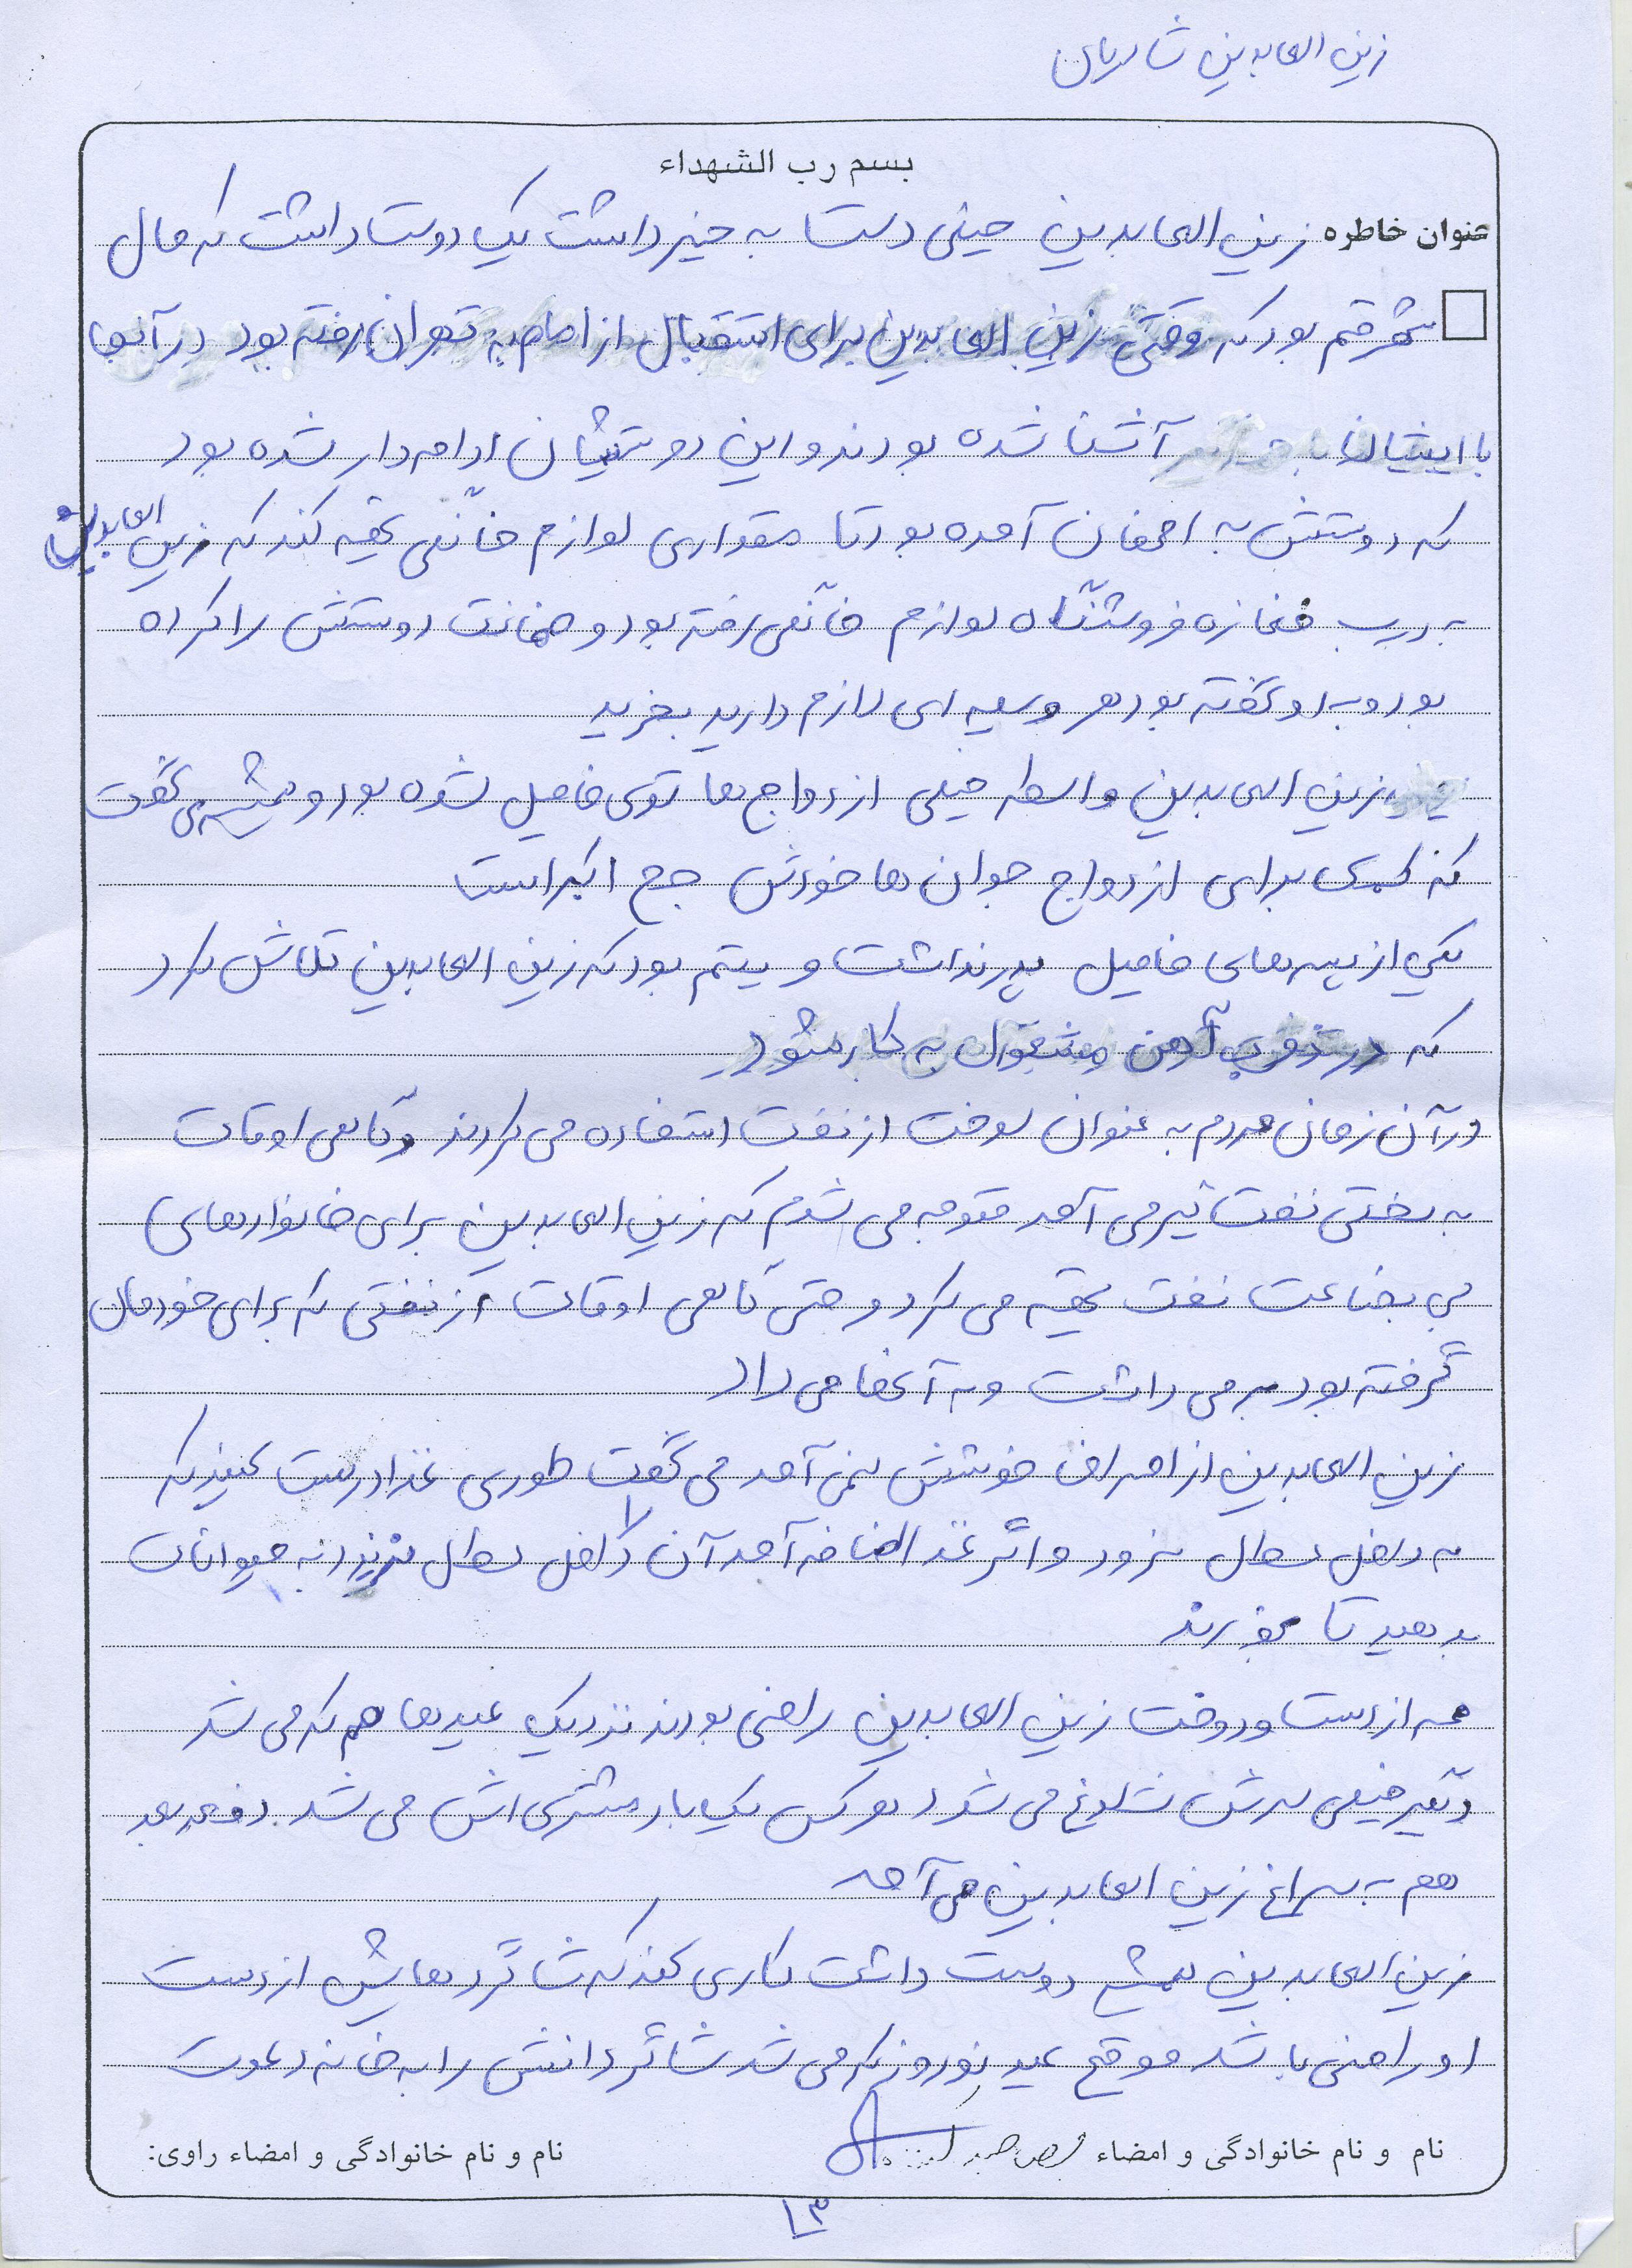 زین العابدین شاطریان
بسم رب الشهداء
عنوان خاطره زین العابدین خیلی دست به خیر داشت یک دوست داشت که مال
شهر قم بود که وقتی زین العابدین برای استقبال از امام به تهران رفته بود در آنجا
با ایشان آشنا شده بودند و این دوستیشان ادامه دار شده بود
که دوستش به اصفهان آمده بود تا مقداری لوازم خانگی تهیه کند که زین العابدین
به درب مغازه فروشگاه لوازم خانگی رفته بود و ضمانت دوستش را کرده
بود و به او گفته بود هر وسیله ای لازم دارید بخرید
زین العابدین واسطه خیلی ازدواج ها توی فامیل شده بود و همیشه می گفت
که کمک برای ازدواج جوان ها خودش حج اکبر است
یکی از بچه های فامیل پدر نداشت و یتیم بود که زین العابدین تلاش کرد
که در ذوب آهن مشغول به کار شود
در آن زمان مردم به عنوان سوخت از نفت استفاده می کردند و گاهی اوقات
به سختی نفت گیر می آمد متوجه می شدم که زین العابدین برای خانواده های
بی بضاعت نفت تهیه می کرد و حتی گاهی اوقات از نفتی که برای خودمان
گرفته بود بر می داشت و به آنها می داد
زین العابدین از اصراف خوشش نمی آمد می گفت طوری غذا درست کنید که
به داخل سطل نرود و اگر غذا اضافه آمد آن را داخل سطل نریزید به حیوانات
بدهید تا بخورند
همه از دست و دوخت زین العابدین راضی بودند نزدیک عیدها هم که می شد
دیگر خیلی سرش شلوغ می شد هر کس یک بار مشتری اش می شد دفعه بعد
هم به سراغ زین العابدین می آمد
زین العابدین همیشه دوست داشت کاری کند که شاگردهایش از دست
او راضی باشد موقع عید نوروز که می شد شاگردانش را به خانه دعوت
نام و نام خانوادگی و امضاء
نام و نام خانوادگی و امضاء راوی:
۱۳